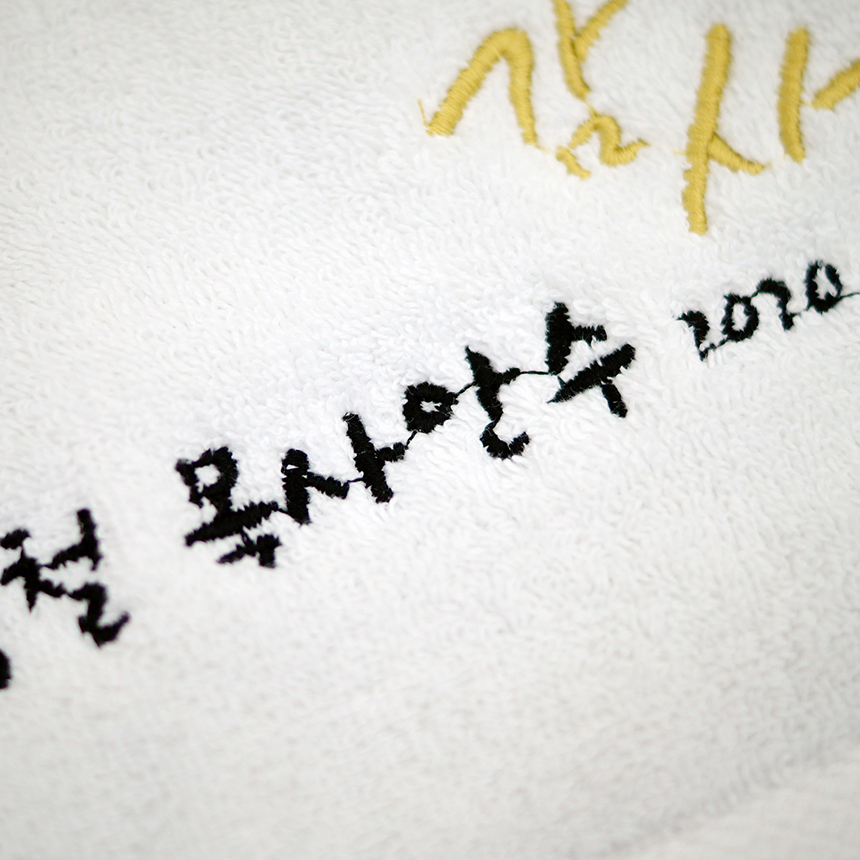 감사
철 목사안수 2020